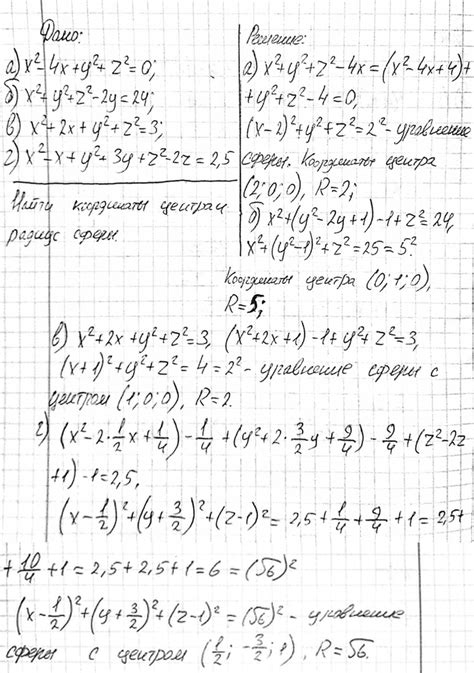 Дано:
а) x² 4x + y² + z² = 0;
б) x² + y² + z² - 2y = 24;
в) x² + 2x + y² + z² = 3;
г) x² - x + y² + 3y + z² - 2z = 2,5
Найти координаты центра и
радиус сферы.
Решение:
а) x² + y² + z² - 4x = (x² - 4x + 4) +
+ y² + z² - 4 = 0,
(x - 2)² + y² + z² = 2² - уравнение
сферы. Координаты центра
(2; 0; 0), R = 2;
б) x² + (y² - 2y + 1) - 1 + z² = 24,
x² + (y² - 1)² + z² = 25 = 5².
Координаты центра (0; 1; 0),
R = 5;
в) x² + 2x + y² + z² = 3, (x² + 2x + 1) - 1 + y² + z² = 3,
(x + 1)² + y² + z² = 4 = 2² - уравнение сферы с
центром (1; 0; 0), R = 2.
г) (x² - 2·1/2x + 1/4) - 1/4 + (y² + 2·3/2y + 9/4) - 9/4 + (z² - 2z
+ 1) - 1 = 2,5,
(x - 1/2)² + (y + 3/2)² + (z - 1)² = 2,5 + 1/4 + 9/4 + 1 = 2,5 +
+ 10/4 + 1 = 2,5 + 2,5 + 1 = 6 = (√6)²
(x - 1/2)² + (y + 3/2)² + (z - 1)² = (√6)² - уравнение
сферы с центром (1/2; -3/2; 1), R = √6.